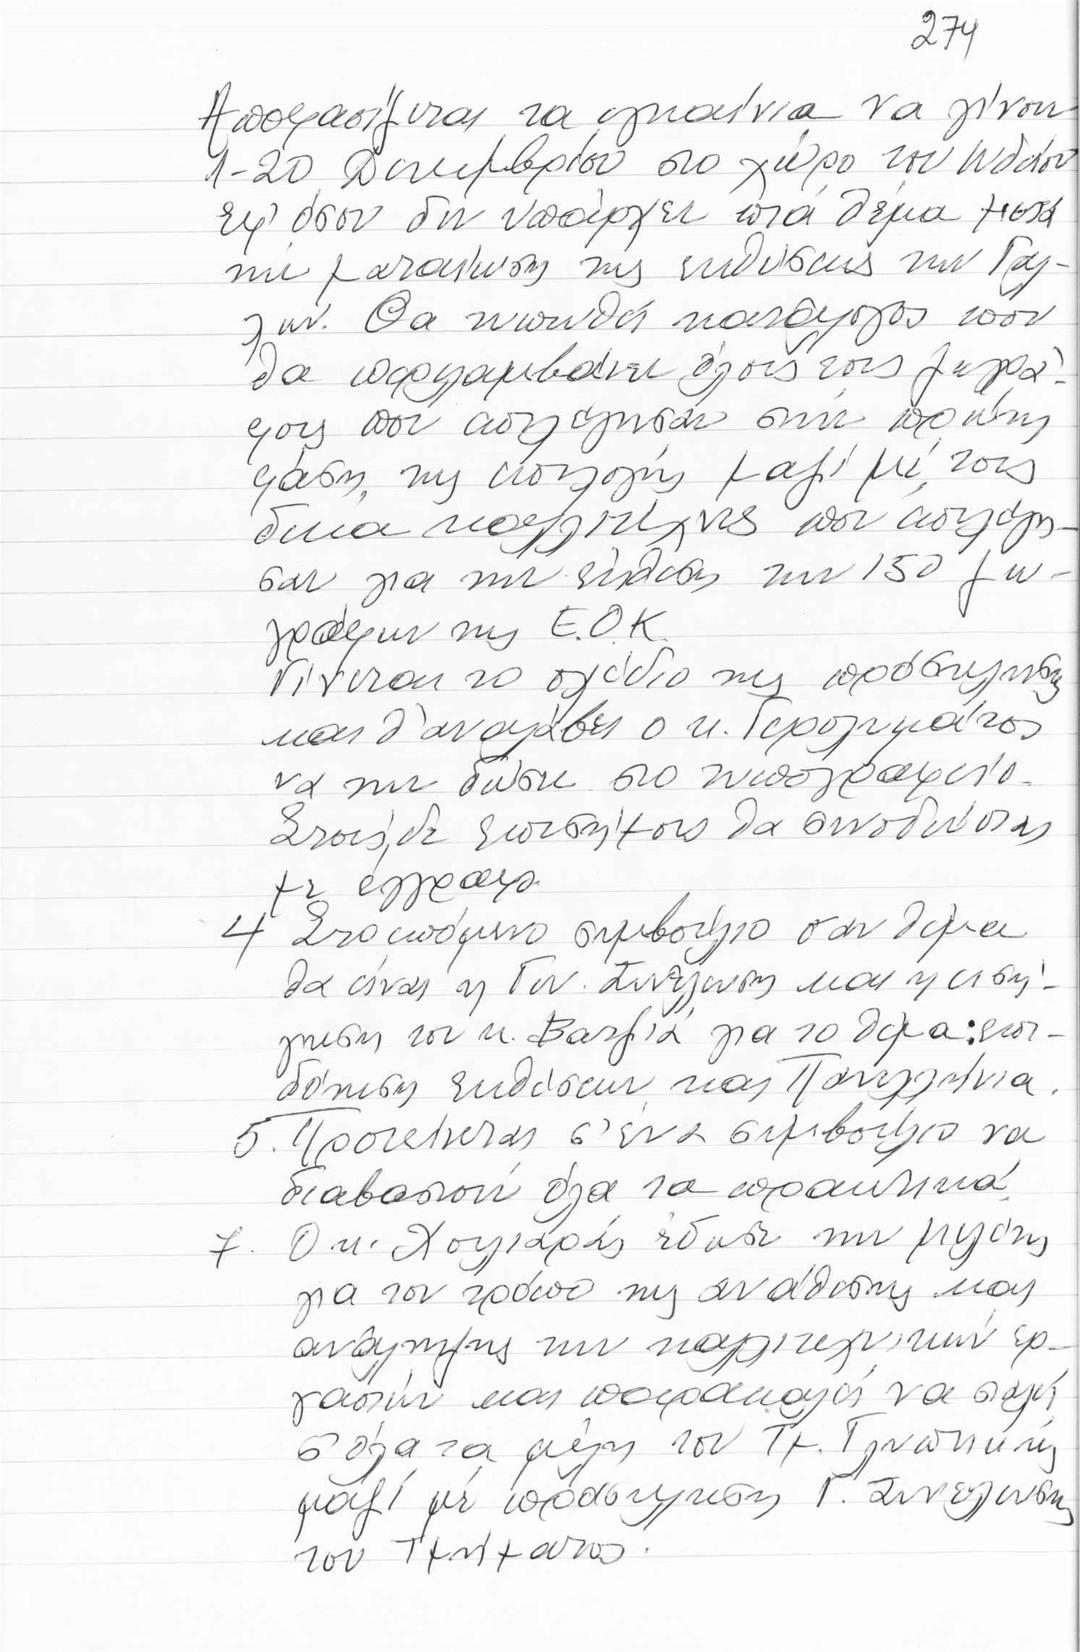 274
Αποφασίζεται τα εγκαίνια να γίνουν
1-20 Δεκεμβρίου στο χώρο του Ωδείου
εφ' όσον δεν υπάρχει πιά θέμα μετά
την ματαίωση της εκθέσεως των Γάλ-
λων. Θα τυπωθεί κατάλογος που
θα περιλαμβάνει όλους τους ζωγρά-
φους που επιλέγησαν στην πρώτη
φάση της επιλογής μαζί με τους
δέκα καλλιτέχνες που επιλέγη-
σαν για την έκθεση των 150 ζω-
γράφων της Ε.Ο.Κ.
Γίνεται το σχέδιο της πρόσκλησης
και θ' αναλάβει ο κ. Γερολυμάτος
να την δώσει στο τυπογραφείο.
Στους δε επισήμους θα συνοδεύεται
με έγγραφο.
4 Στο επόμενο συμβούλιο σαν θέμα
θα είναι η Γεν. Συνέλευση και η εισή-
γηση του κ. Βατζιά για το θέμα: επι-
δότηση εκθέσεων και Πανελλήνια.
5. Προτείνεται σ' ένα συμβούλιο να
διαβαστούν όλα τα πρακτικά.
7. Ο κ. Χουλιαράς έδωσε την μελέτη
για τον τρόπο της ανάθεσης και
ανάληψης των καλλιτεχνικών ερ-
γασιών και παρακαλεί να σταλεί
σ' όλα τα μέλη του Τμ. Γλυπτικής
μαζί με πρόσκληση Γ. Συνέλευσης
του Τμήματος.